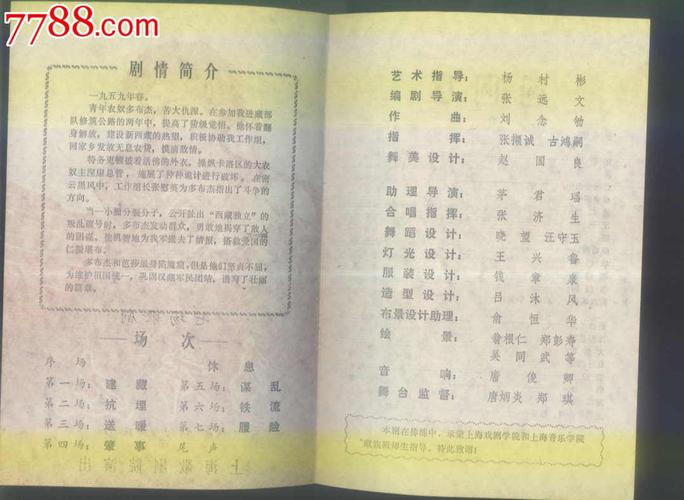 7788.com
剧情简介
一九五九年春。
青年农奴多布杰,苦大仇深。在参加我进藏部
队修筑公路的两年中,提高了阶级觉悟。他怀着翻
身解放,建设新西藏的热望,积极协助我工作组,
回家乡发放无息农贷,摸清敌情。
特务更顿披着活佛的外衣,操纵卡洛区的大农
奴主涅康总管,施展了种种诡计进行破坏。在南
云黑风中,工作组长张慰英为多布杰指出了斗争的
方向。
当一小撮分裂分子,公开扯出“西藏独立”的
叛乱旗号时,多布杰发动群众,勇敢地揭穿了敌人
的阴谋。他机智地为我军送去了情报,搭救爱国的
仁增堪布。
多布杰和芭莎最身陷魔窟,但是他们坚贞不屈,
为维护祖国统一,巩固汉藏军民团结,谱写了壮丽
的篇章。
场次
序场 休息
第一场:建藏 第五场:谋乱
第二场:抗理 第六场:铁流
第三场:送暖 第七场:履险
第四场:肇事 尾声
上海歌剧院演出
艺术指导:杨村彬
编剧导演:张远文
作曲:刘念劬
指挥:张㧑诚 古鸿嗣
舞美设计:赵国良
助理导演:茅君瑶
合唱指挥:张济生
舞蹈设计:晓望 汪守玉
灯光设计:王兴鲁
服装设计:钱章康
造型设计:吕沐风
布景设计助理:俞恒华
绘景:翁根仁 郑彭寿
吴同武等
音响:唐俊卿
舞台监督:唐炳炎 郑琪
本剧在排练中,承蒙上海戏剧学院和上海音乐学院
藏族班师生指导,特此致谢!